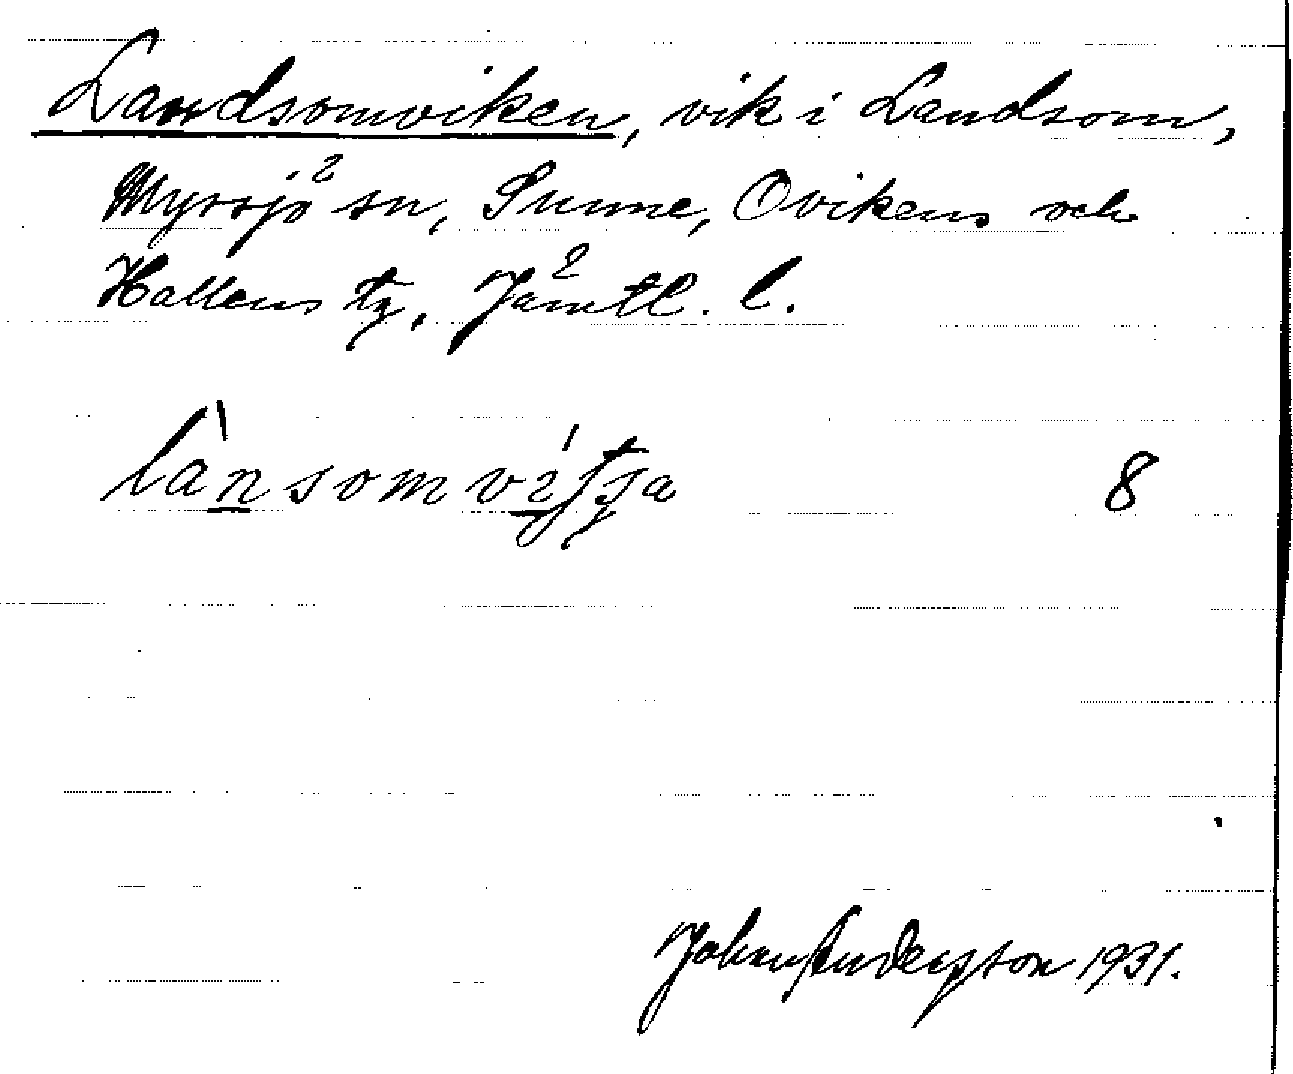 Landsomviken, vik i Landsom,
Myssjö sn, Sunne, Ovikens och
Hallens tg, Jämtl. l.
8
John Anderson 1931.